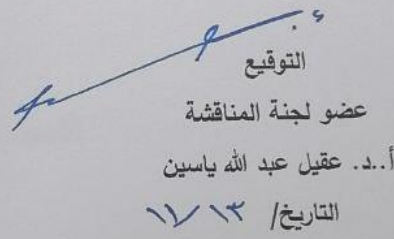 التوقيع
عضو لجنة المناقشة
أ.د. عقيل عبد الله ياسين
التاريخ/ ١٣ / ١١